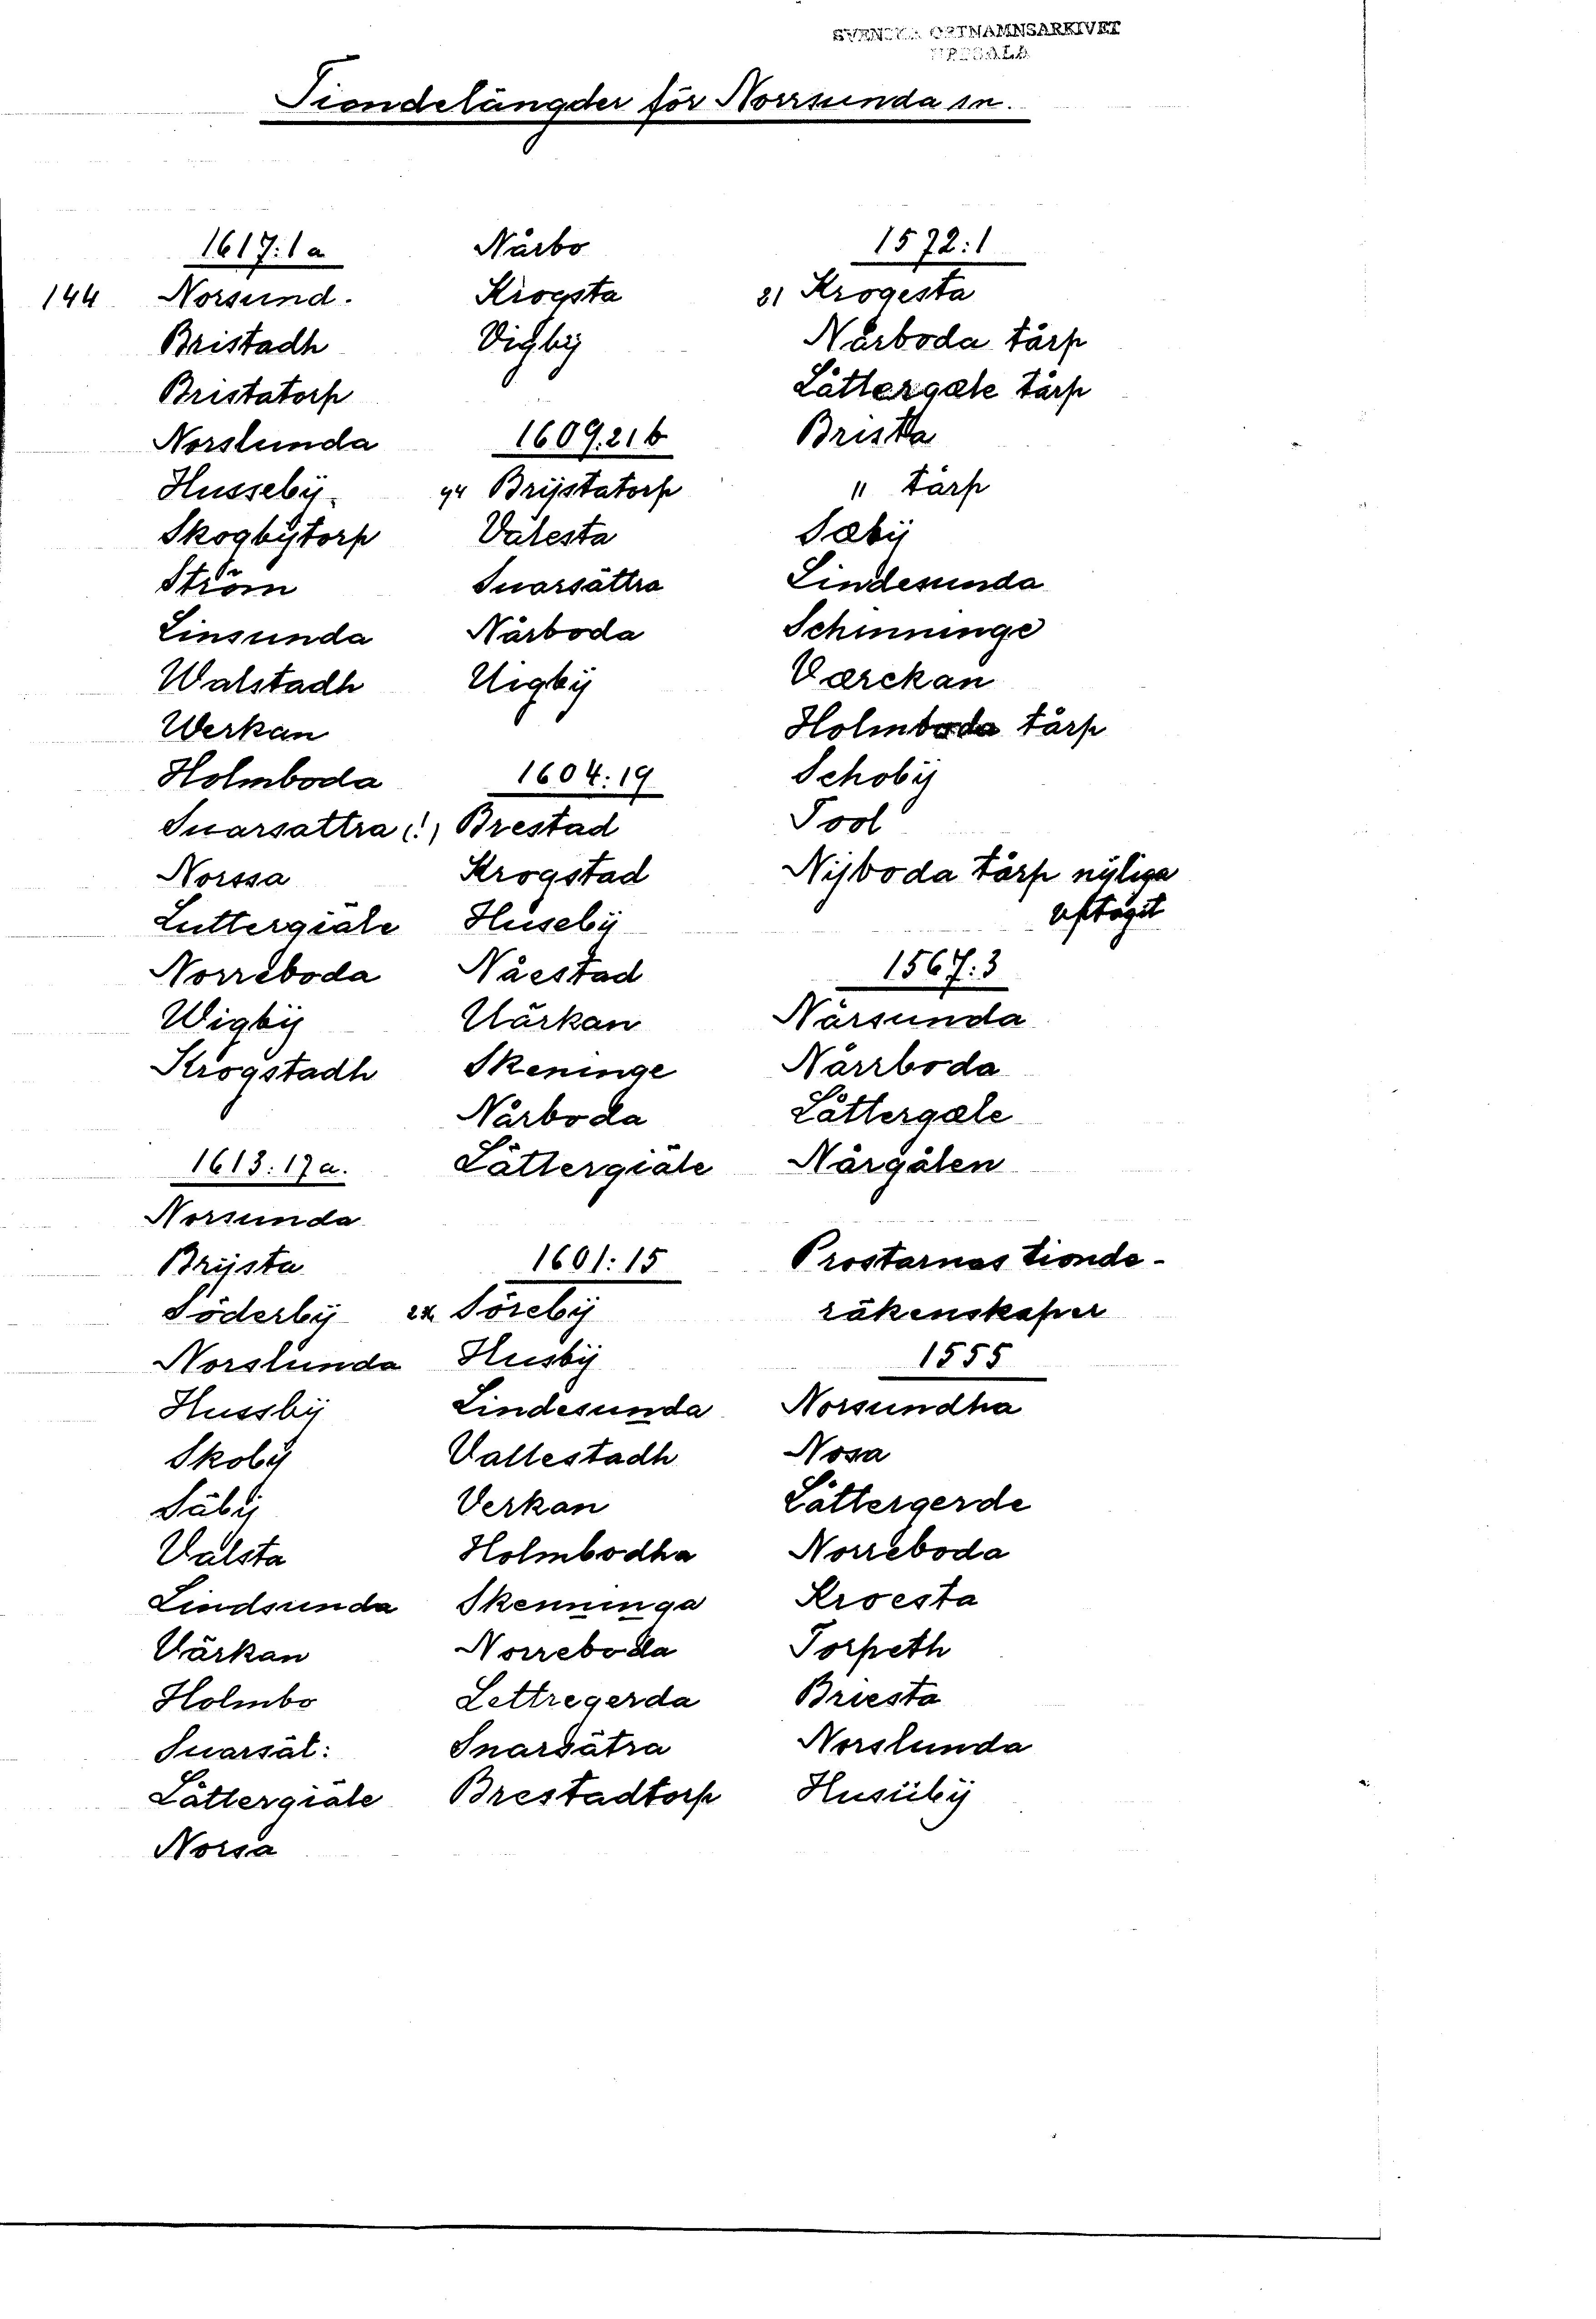 SVENSKA ORTNAMNSARKIVET
UPPSALA
Tiondelängder för Norrsunda sn.
1617:1a
144 Norsund.
Bristadh
Bristatorp
Norslunda
Hussebÿ
Skogbÿtorp
Ström
Linsunda
Walstadh
Werkan
Holmboda
Suarsattra (!)
Norssa
Luttergiäle
Norreboda
Wigbÿ
Krogstadh
1613:17a.
Norsunda
Brÿsta
Söderbÿ
Norslunda
Hussbÿ
Skobÿ
Säbÿ
Valsta
Lindsunda
Värkan
Holmbo
Suarsät:
Låttergiäle
Norsa
Nårbo
Krogsta
Vigbÿ
1609:21b
94 Brÿstatorp
Válesta
Suarsättra
Nårboda
Uigbÿ
1604:19
Brestad
Krogstad
Husebÿ
Nåestad
Uärkan
Skeninge
Nårboda
Låttergiäle
1601:15
Sörebÿ
Husbÿ
Lindesunda
Vallestadh
Verkan
Holmbodha
Skenninga
Norreboda
Lettregerda
Snarsätra
Brestadtorp
1572:1
81 Krogesta
Nårboda tårp
Låttergæle tårp
Brista
" tårp
Sæbÿ
Lindesunda
Schinninge
Værckan
Holmboda tårp
Schobÿ
Tool
Nÿboda tårp nÿliga
uptagit
1567:3
Nårsunda
Nårrboda
Låttergæle
Nårgålen
Prostarnas tionde-
räkenskaper
1555
Norsundha
Nosa
Låttergerde
Norreboda
Kroesta
Torpeth
Briesta
Norslunda
Husübÿ